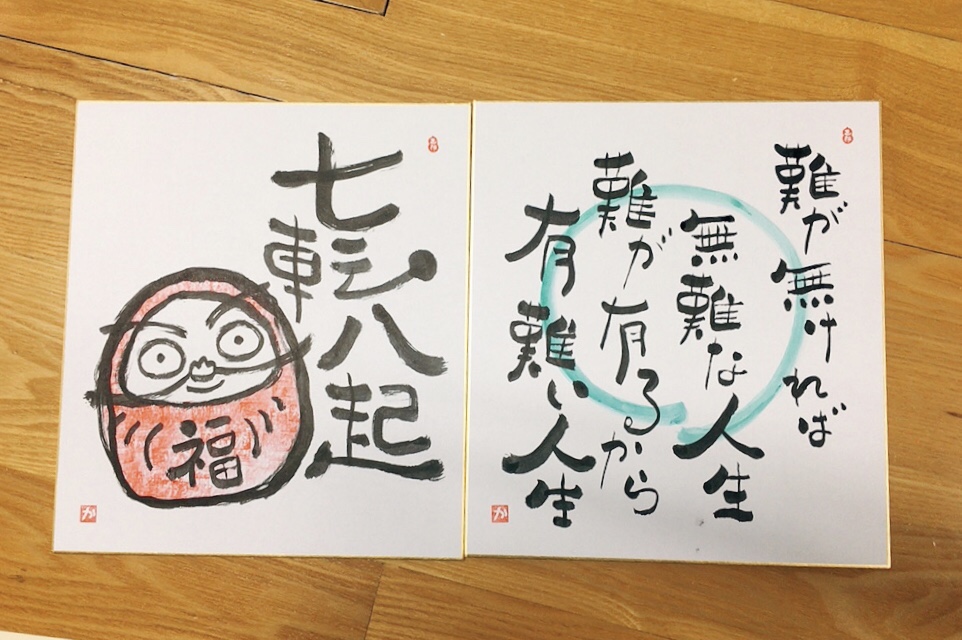 七転八起
福
か
難が無ければ
無難な人生
難が有るから
有難い人生
か